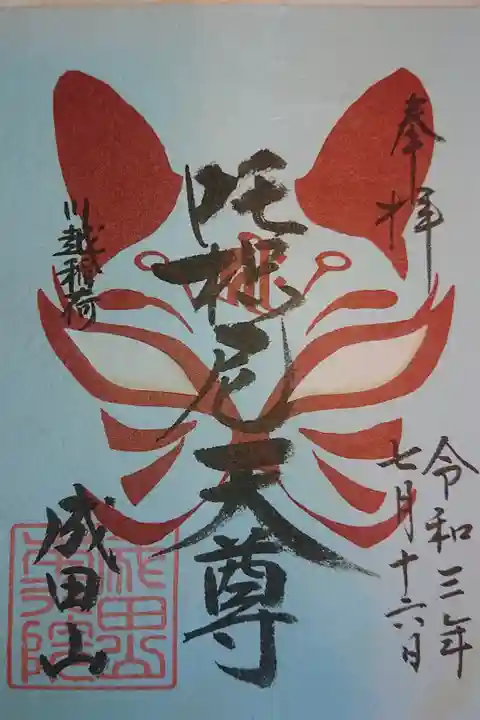 奉拝
令和三年
七月十六日
吒枳尼天尊
川越稲荷
成田山